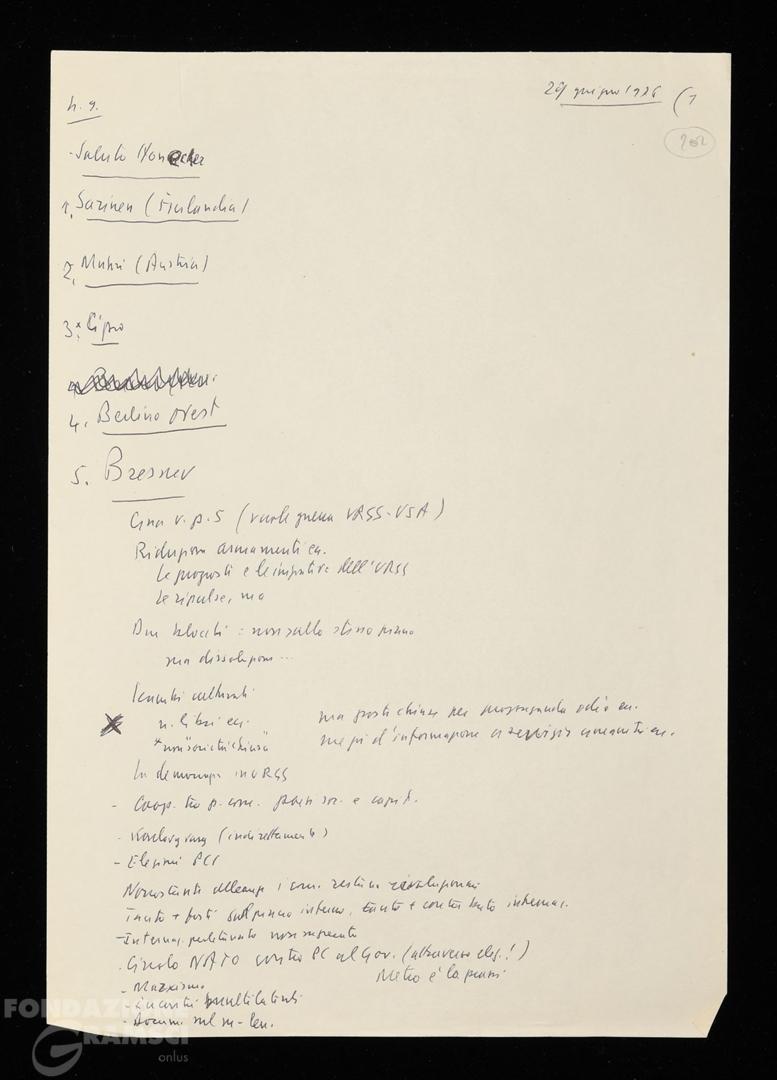 29 giugno 1976 (1
h. 9.
202
- Saluto Honecker
1. Sarinen (Finlandia)
2. Muhri (Austria)
3. x Cipro
4. Berlino ovest
5. Bresnev
Cina v. p. 5 (vuole guerra URSS-USA)
Riduzione armamenti ecc.
Le proposte e le iniziative dell'URSS
Le ripulse, ma
Due blocchi: non sullo stesso piano
ma dissoluzione...
Scambi culturali
n. libri ecc. ma porte chiuse per propaganda odio ecc.
* non "società chiusa" mezzi d'informazione a servizio umanità ecc.
La democrazia in URSS
- Coop. tra p. com. paesi soc. e capit.
- (indirettamente)
- Elezioni PCI
Nonostante alleanze i com. restano rivoluzionari
Tanto + forti sul piano interno, tanto + contributo internaz.
- Internaz. proletario non superato
- Circolo NATO contro PC al Gov. (attraverso elez.!)
Metro è la prassi
- Marxismo
- Incontri multilaterali
- Docum. sul m-len.
FONDAZIONE
GRAMSCI
onlus